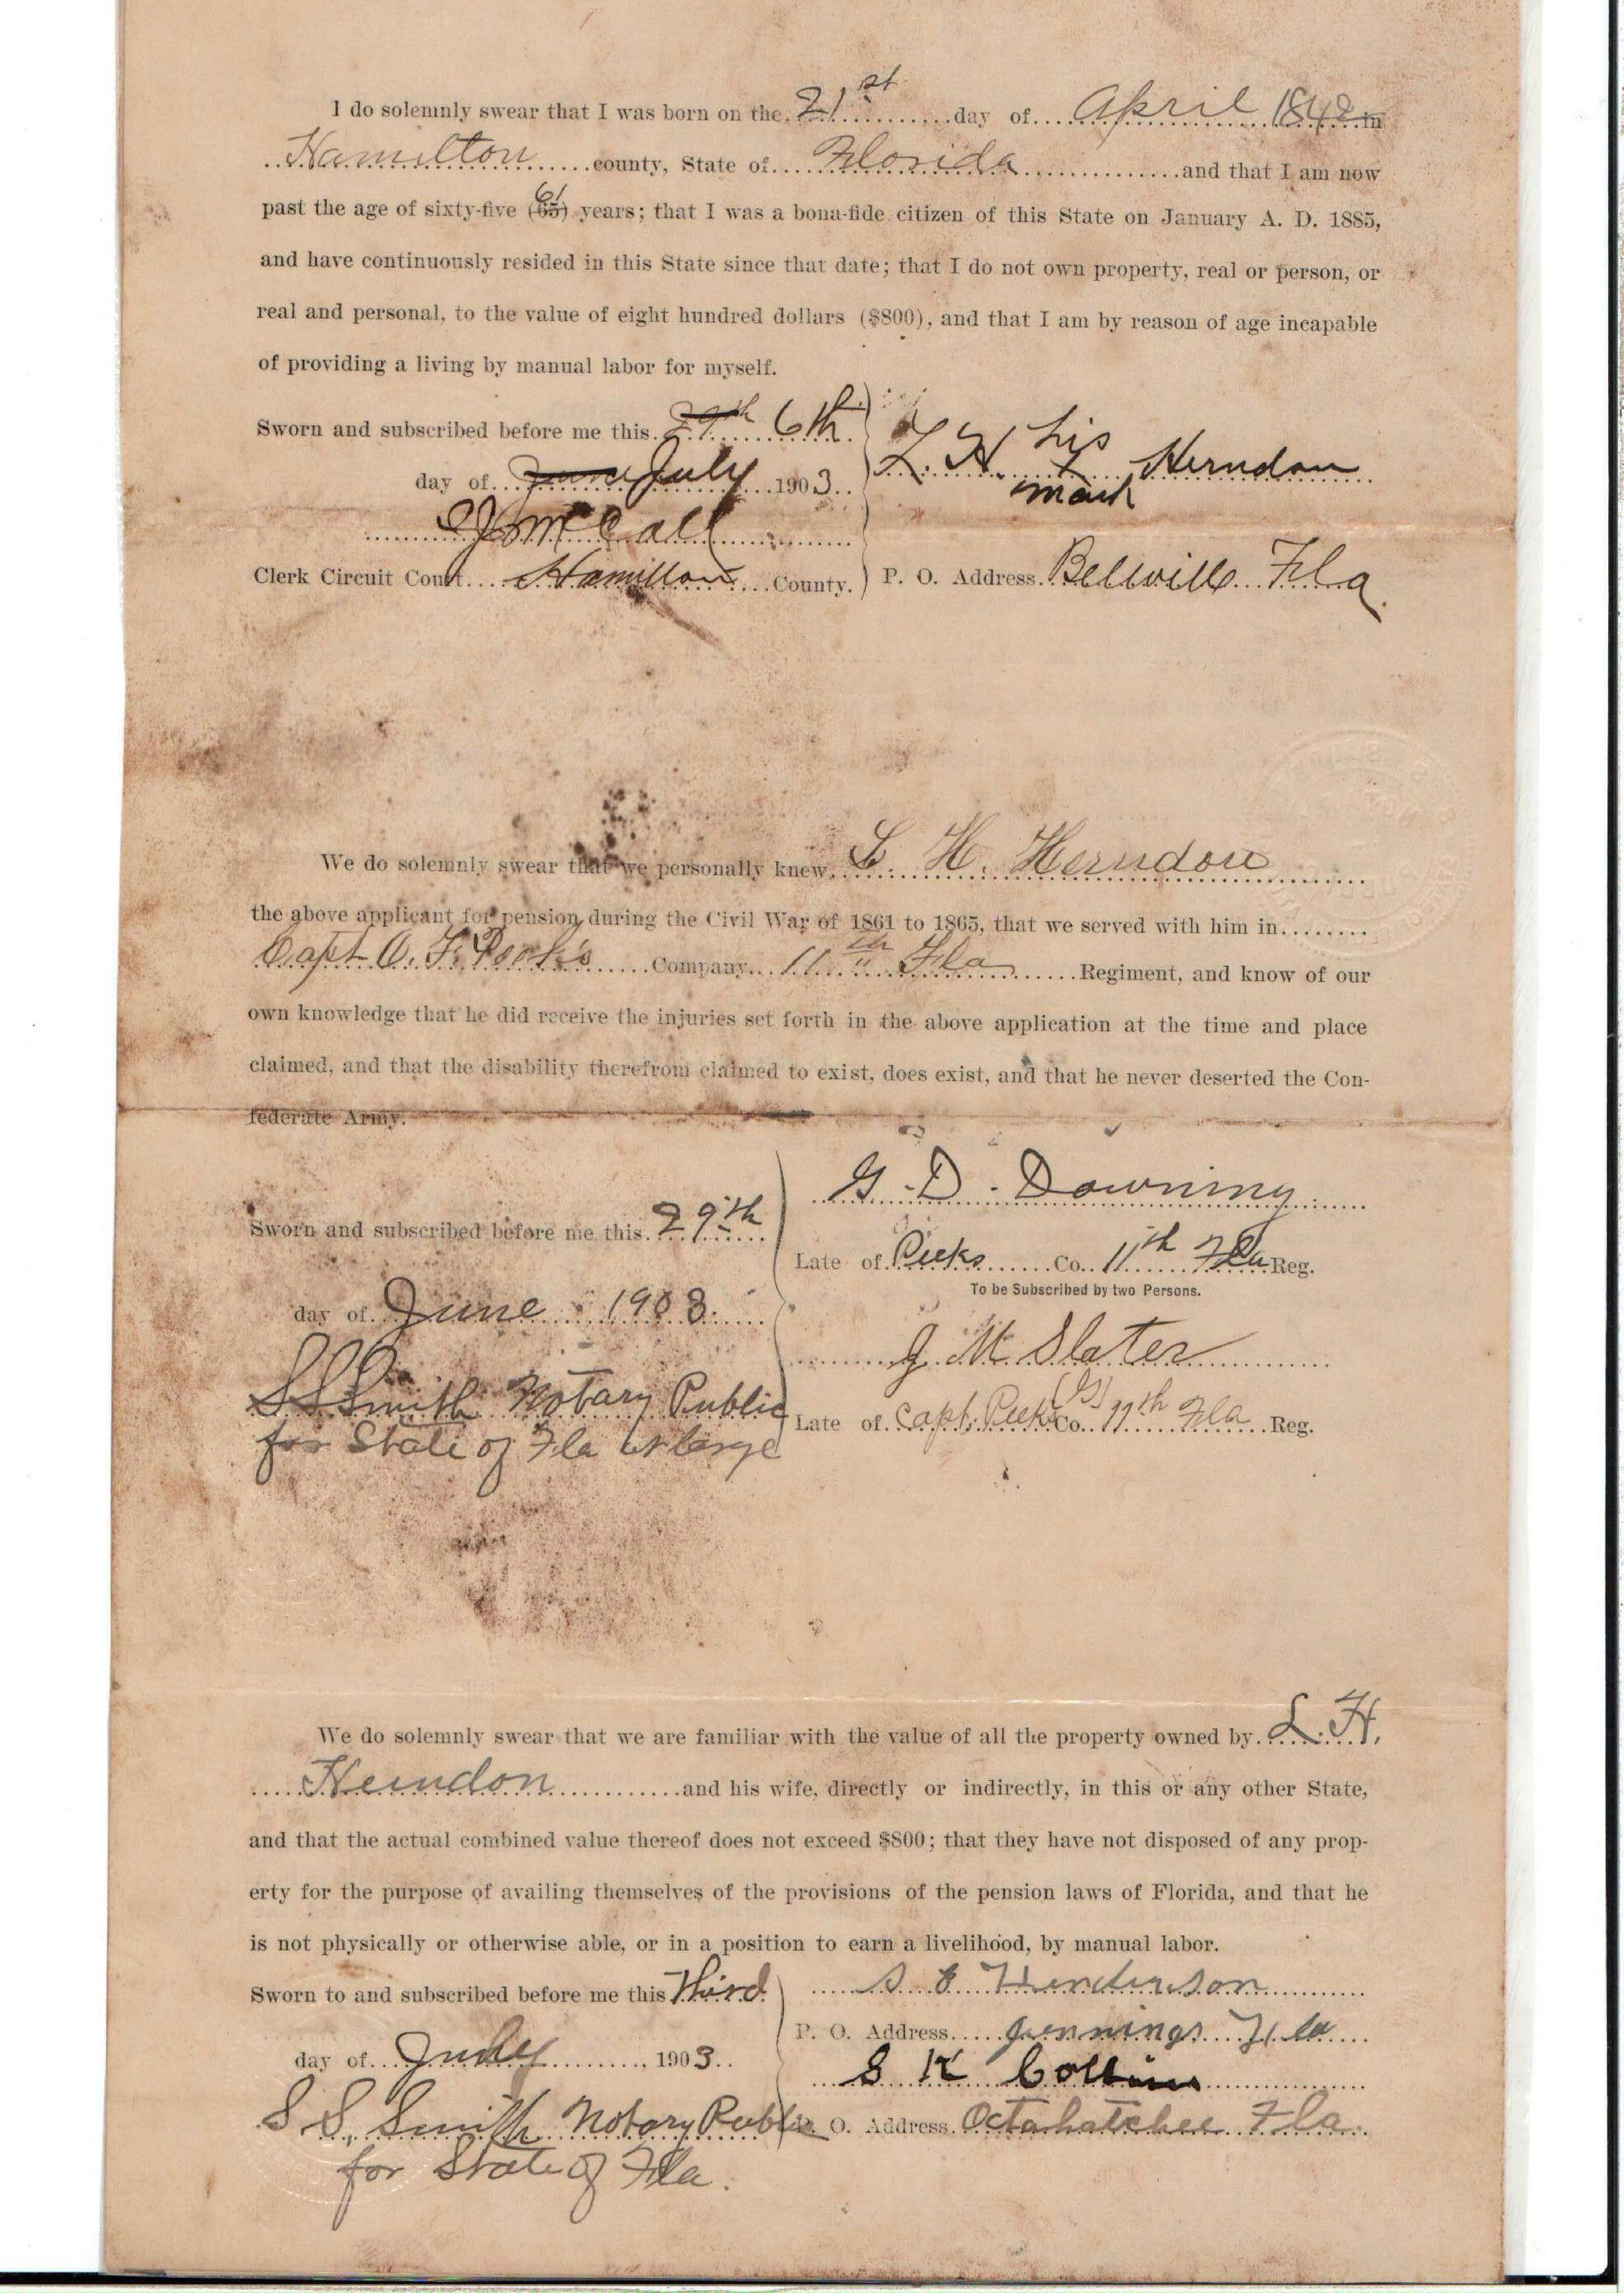 I do solemnly swear that I was born on the 21st day of April 1842 in
Hamilton county, State of Florida and that I am now
61
past the age of sixty-five (65) years; that I was a bona-fide citizen of this State on January A. D. 1885,
and have continuously resided in this State since that date; that I do not own property, real or person, or
real and personal, to the value of eight hundred dollars ($800), and that I am by reason of age incapable
of providing a living by manual labor for myself.
Sworn and subscribed before me this 29th 6th
day of June July 1903
McCall
Clerk Circuit Court Hamilton County.
his
L. H. Herndon
mark
P. O. Address Bellville Fla
We do solemnly swear that we personally knew L. H. Herndon
the above applicant for pension during the Civil War of 1861 to 1865, that we served with him in
Capt O. F. Peek's Company 11th Fla Regiment, and know of our
own knowledge that he did receive the injuries set forth in the above application at the time and place
claimed, and that the disability therefrom claimed to exist, does exist, and that he never deserted the Con-
federate Army.
Sworn and subscribed before me this 29th
day of June 1903
S S Smith Notary Public
for State of Fla at large
G. D. Downing
Late of Peeks Co. 11th Fla Reg.
To be Subscribed by two Persons.
J. M Slater
Late of Capt. Peeks (G) Co. 11th Fla Reg.
We do solemnly swear that we are familiar with the value of all the property owned by L. H.
Herndon and his wife, directly or indirectly, in this or any other State,
and that the actual combined value thereof does not exceed $800; that they have not disposed of any prop-
erty for the purpose of availing themselves of the provisions of the pension laws of Florida, and that he
is not physically or otherwise able, or in a position to earn a livelihood, by manual labor.
Sworn to and subscribed before me this Third
day of July, 1903
S S. Smith Notary Public
for State of Fla.
S E Henderson
P. O. Address Jennings Fla
S K Collins
P. O. Address Octahatchee Fla.